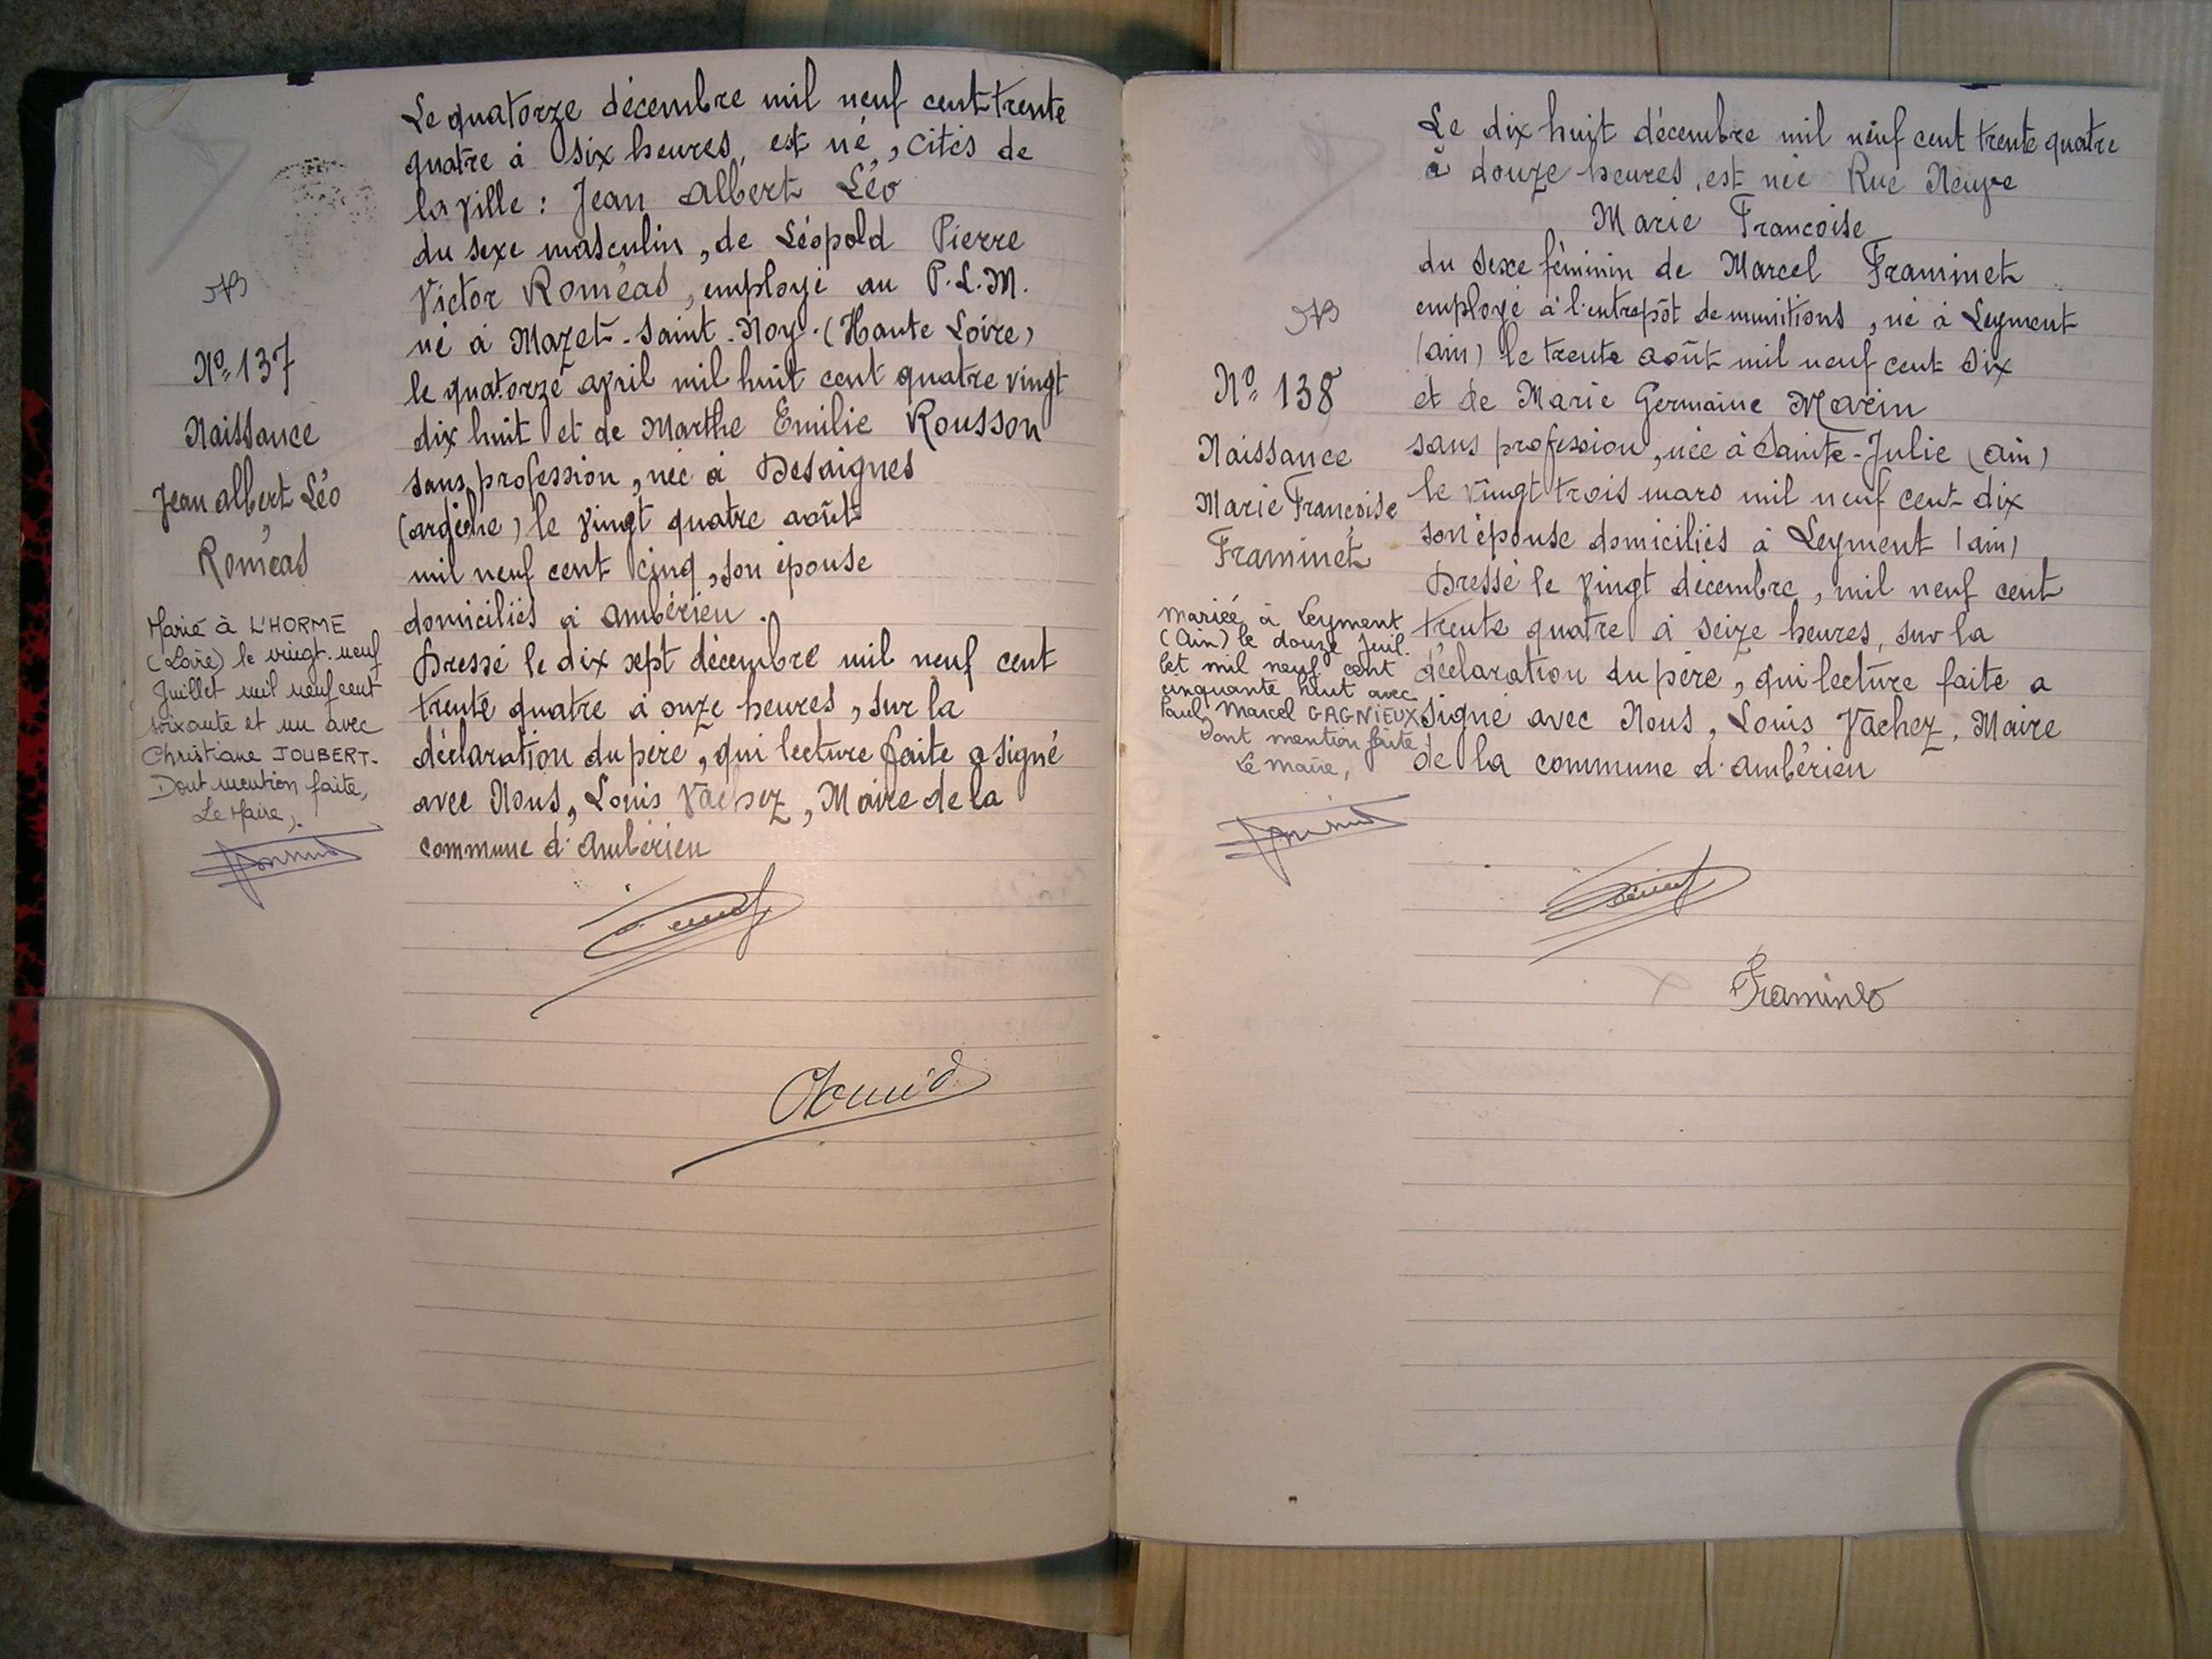 Le quatorze décembre mil neuf cent trente
quatre à six heures, est né, cités de
la ville : Jean Albert Léo
du sexe masculin, de Léopold Pierre
Victor Roméas, employé au P.L.M.
né à Mazet-Saint-Noy (Haute Loire)
le quatorze avril mil huit cent quatre vingt
dix huit et de Marthe Emilie Rousson
sans profession, née à Desaignes
(ardèche) le vingt quatre août
mil neuf cent cinq, son épouse
domiciliés à ambérieu.
Dressé le dix sept décembre mil neuf cent
trente quatre à onze heures, sur la
déclaration du père, qui lecture faite a signé
avec Nous, Louis Vachez, Maire de la
commune d'ambérieu
Nº 137
Naissance
Jean albert Léo
Roméas
Marié à L'HORME
(Loire) le vingt-neuf
Juillet mil neuf cent
soixante et un avec
Christiane JOUBERT.
Dont mention faite,
Le Maire,
Le dix huit décembre mil neuf cent trente quatre
à douze heures, est née Rue Neuve
Marie Francoise
du sexe féminin de Marcel Framinet
employé à l'entrepôt de munitions, né à Leyment
(ain) le trente août mil neuf cent six
et de Marie Germaine Marin
sans profession, née à Sainte-Julie (ain)
le vingt trois mars mil neuf cent dix
son épouse domiciliés à Leyment (ain)
Dressé le vingt décembre, mil neuf cent
trente quatre à seize heures, sur la
déclaration du père, qui lecture faite a
signé avec Nous, Louis Vachez, Maire
de la commune d'ambérieu
Framinet
Nº 138
Naissance
Marie Francoise
Framinet
mariée à Leyment
(Ain) le douze Juil-
let mil neuf cent
cinquante huit avec
Paul, Marcel GAGNIEUX
Dont mention faite
Le maire,